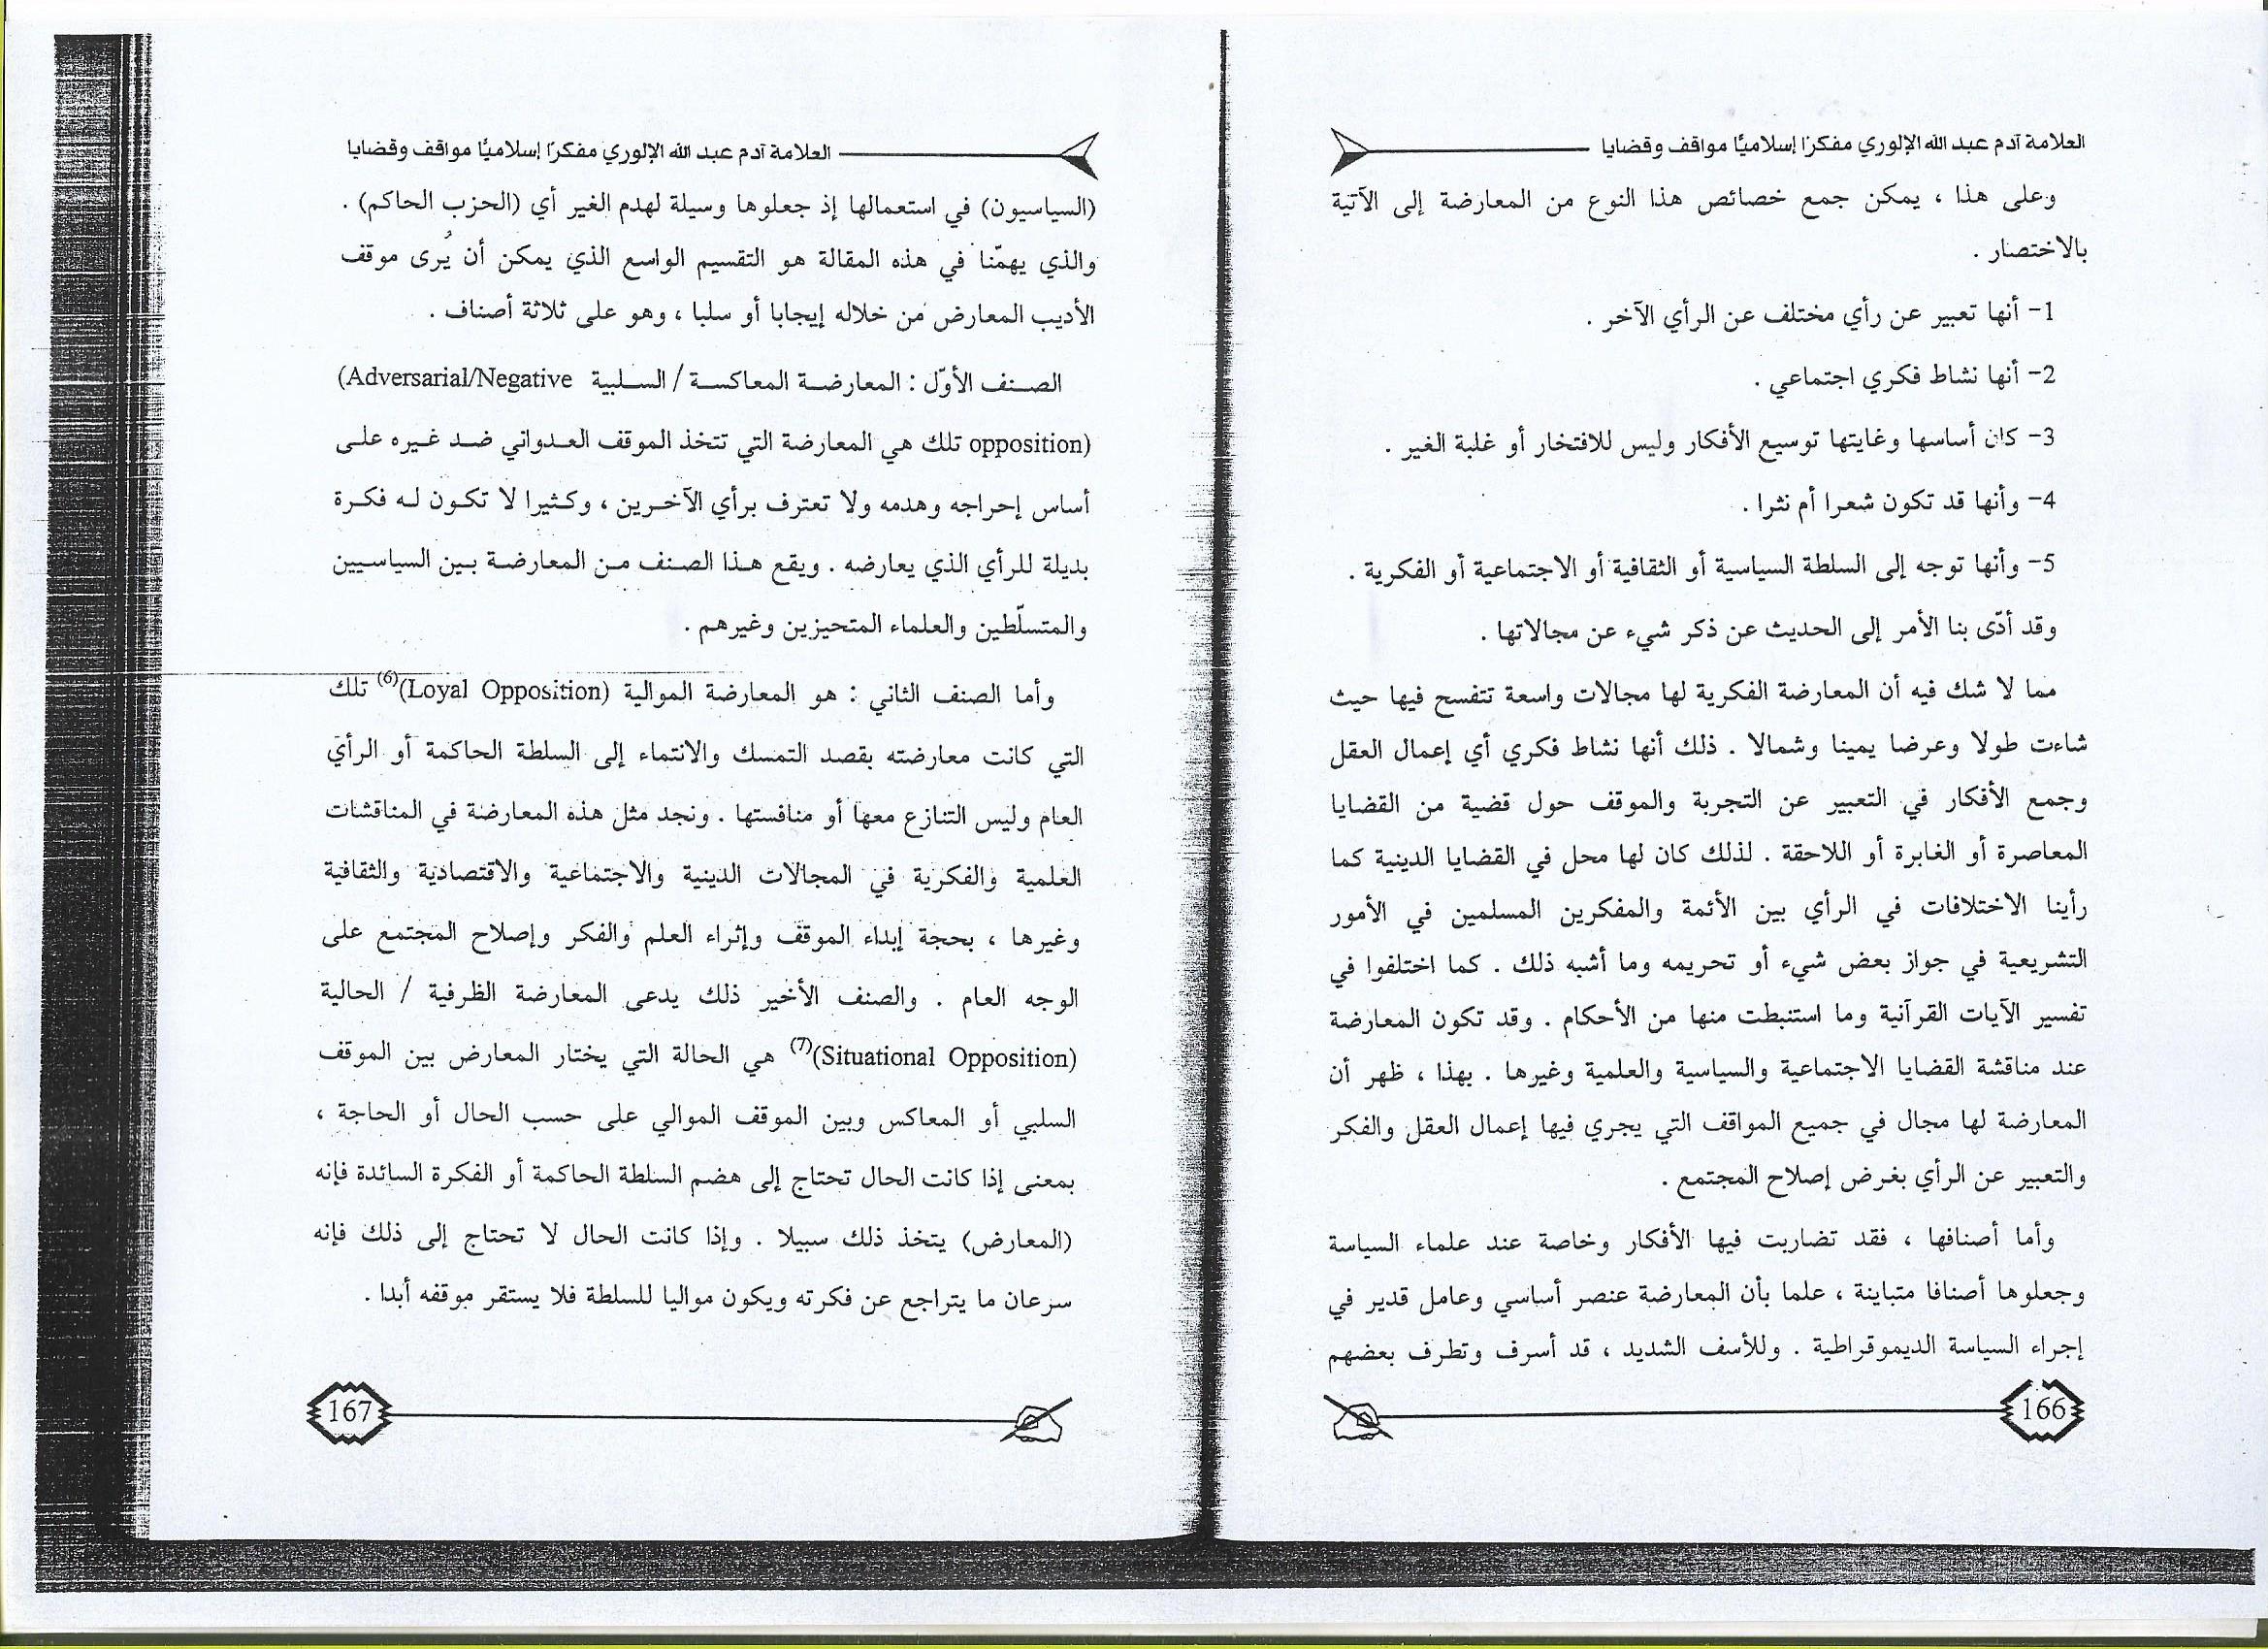 العلامة آدم عبد الله الإلوري مفكرًا إسلاميًّا مواقف وقضايا
وعلى هذا ، يمكن جمع خصائص هذا النوع من المعارضة إلى الآتية
بالاختصار .
1- أنها تعبير عن رأي مختلف عن الرأي الآخر .
2- أنها نشاط فكري اجتماعي .
3- كان أساسها وغايتها توسيع الأفكار وليس للافتخار أو غلبة الغير .
4- وأنها قد تكون شعرا أم نثرا .
5- وأنها توجه إلى السلطة السياسية أو الثقافية أو الاجتماعية أو الفكرية .
وقد أدّى بنا الأمر إلى الحديث عن ذكر شيء عن مجالاتها .
مما لا شك فيه أن المعارضة الفكرية لها مجالات واسعة تتفسح فيها حيث
شاءت طولا وعرضا يمينا وشمالا . ذلك أنها نشاط فكري أي إعمال العقل
وجمع الأفكار في التعبير عن التجربة والموقف حول قضية من القضايا
المعاصرة أو الغابرة أو اللاحقة . لذلك كان لها محل في القضايا الدينية كما
رأينا الاختلافات في الرأي بين الأئمة والمفكرين المسلمين في الأمور
التشريعية في جواز بعض شيء أو تحريمه وما أشبه ذلك . كما اختلفوا في
تفسير الآيات القرآنية وما استنبطت منها من الأحكام . وقد تكون المعارضة
عند مناقشة القضايا الاجتماعية والسياسية والعلمية وغيرها . بهذا ، ظهر أن
المعارضة لها مجال في جميع المواقف التي يجري فيها إعمال العقل والفكر
والتعبير عن الرأي بغرض إصلاح المجتمع .
وأما أصنافها ، فقد تضاربت فيها الأفكار وخاصة عند علماء السياسة
وجعلوها أصنافا متباينة ، علما بأن المعارضة عنصر أساسي وعامل قدير في
إجراء السياسة الديموقراطية . وللأسف الشديد ، قد أسرف وتطرف بعضهم
166
العلامة آدم عبد الله الإلوري مفكرًا إسلاميًّا مواقف وقضايا
(السياسيون) في استعمالها إذ جعلوها وسيلة لهدم الغير أي (الحزب الحاكم) .
والذي يهمّنا في هذه المقالة هو التقسيم الواسع الذي يمكن أن يُرى موقف
الأديب المعارض من خلاله إيجابا أو سلبا ، وهو على ثلاثة أصناف .
الصنف الأوّل : المعارضة المعاكسة / السلبية (Adversarial/Negative
opposition) تلك هي المعارضة التي تتخذ الموقف العدواني ضد غيره على
أساس إحراجه وهدمه ولا تعترف برأي الآخرين ، وكثيرا لا تكون له فكرة
بديلة للرأي الذي يعارضه . ويقع هذا الصنف من المعارضة بين السياسيين
والمتسلّطين والعلماء المتحيزين وغيرهم .
وأما الصنف الثاني : هو المعارضة الموالية (Loyal Opposition)(6) تلك
التي كانت معارضته بقصد التمسك والانتماء إلى السلطة الحاكمة أو الرأي
العام وليس التنازع معها أو منافستها . ونجد مثل هذه المعارضة في المناقشات
العلمية والفكرية في المجالات الدينية والاجتماعية والاقتصادية والثقافية
وغيرها ، بحجة إبداء الموقف وإثراء العلم والفكر وإصلاح المجتمع على
الوجه العام . والصنف الأخير ذلك يدعى المعارضة الظرفية / الحالية
(Situational Opposition)(7) هي الحالة التي يختار المعارض بين الموقف
السلبي أو المعاكس وبين الموقف الموالي على حسب الحال أو الحاجة ،
بمعنى إذا كانت الحال تحتاج إلى هضم السلطة الحاكمة أو الفكرة السائدة فإنه
(المعارض) يتخذ ذلك سبيلا . وإذا كانت الحال لا تحتاج إلى ذلك فإنه
سرعان ما يتراجع عن فكرته ويكون مواليا للسلطة فلا يستقر موقفه أبدا .
167